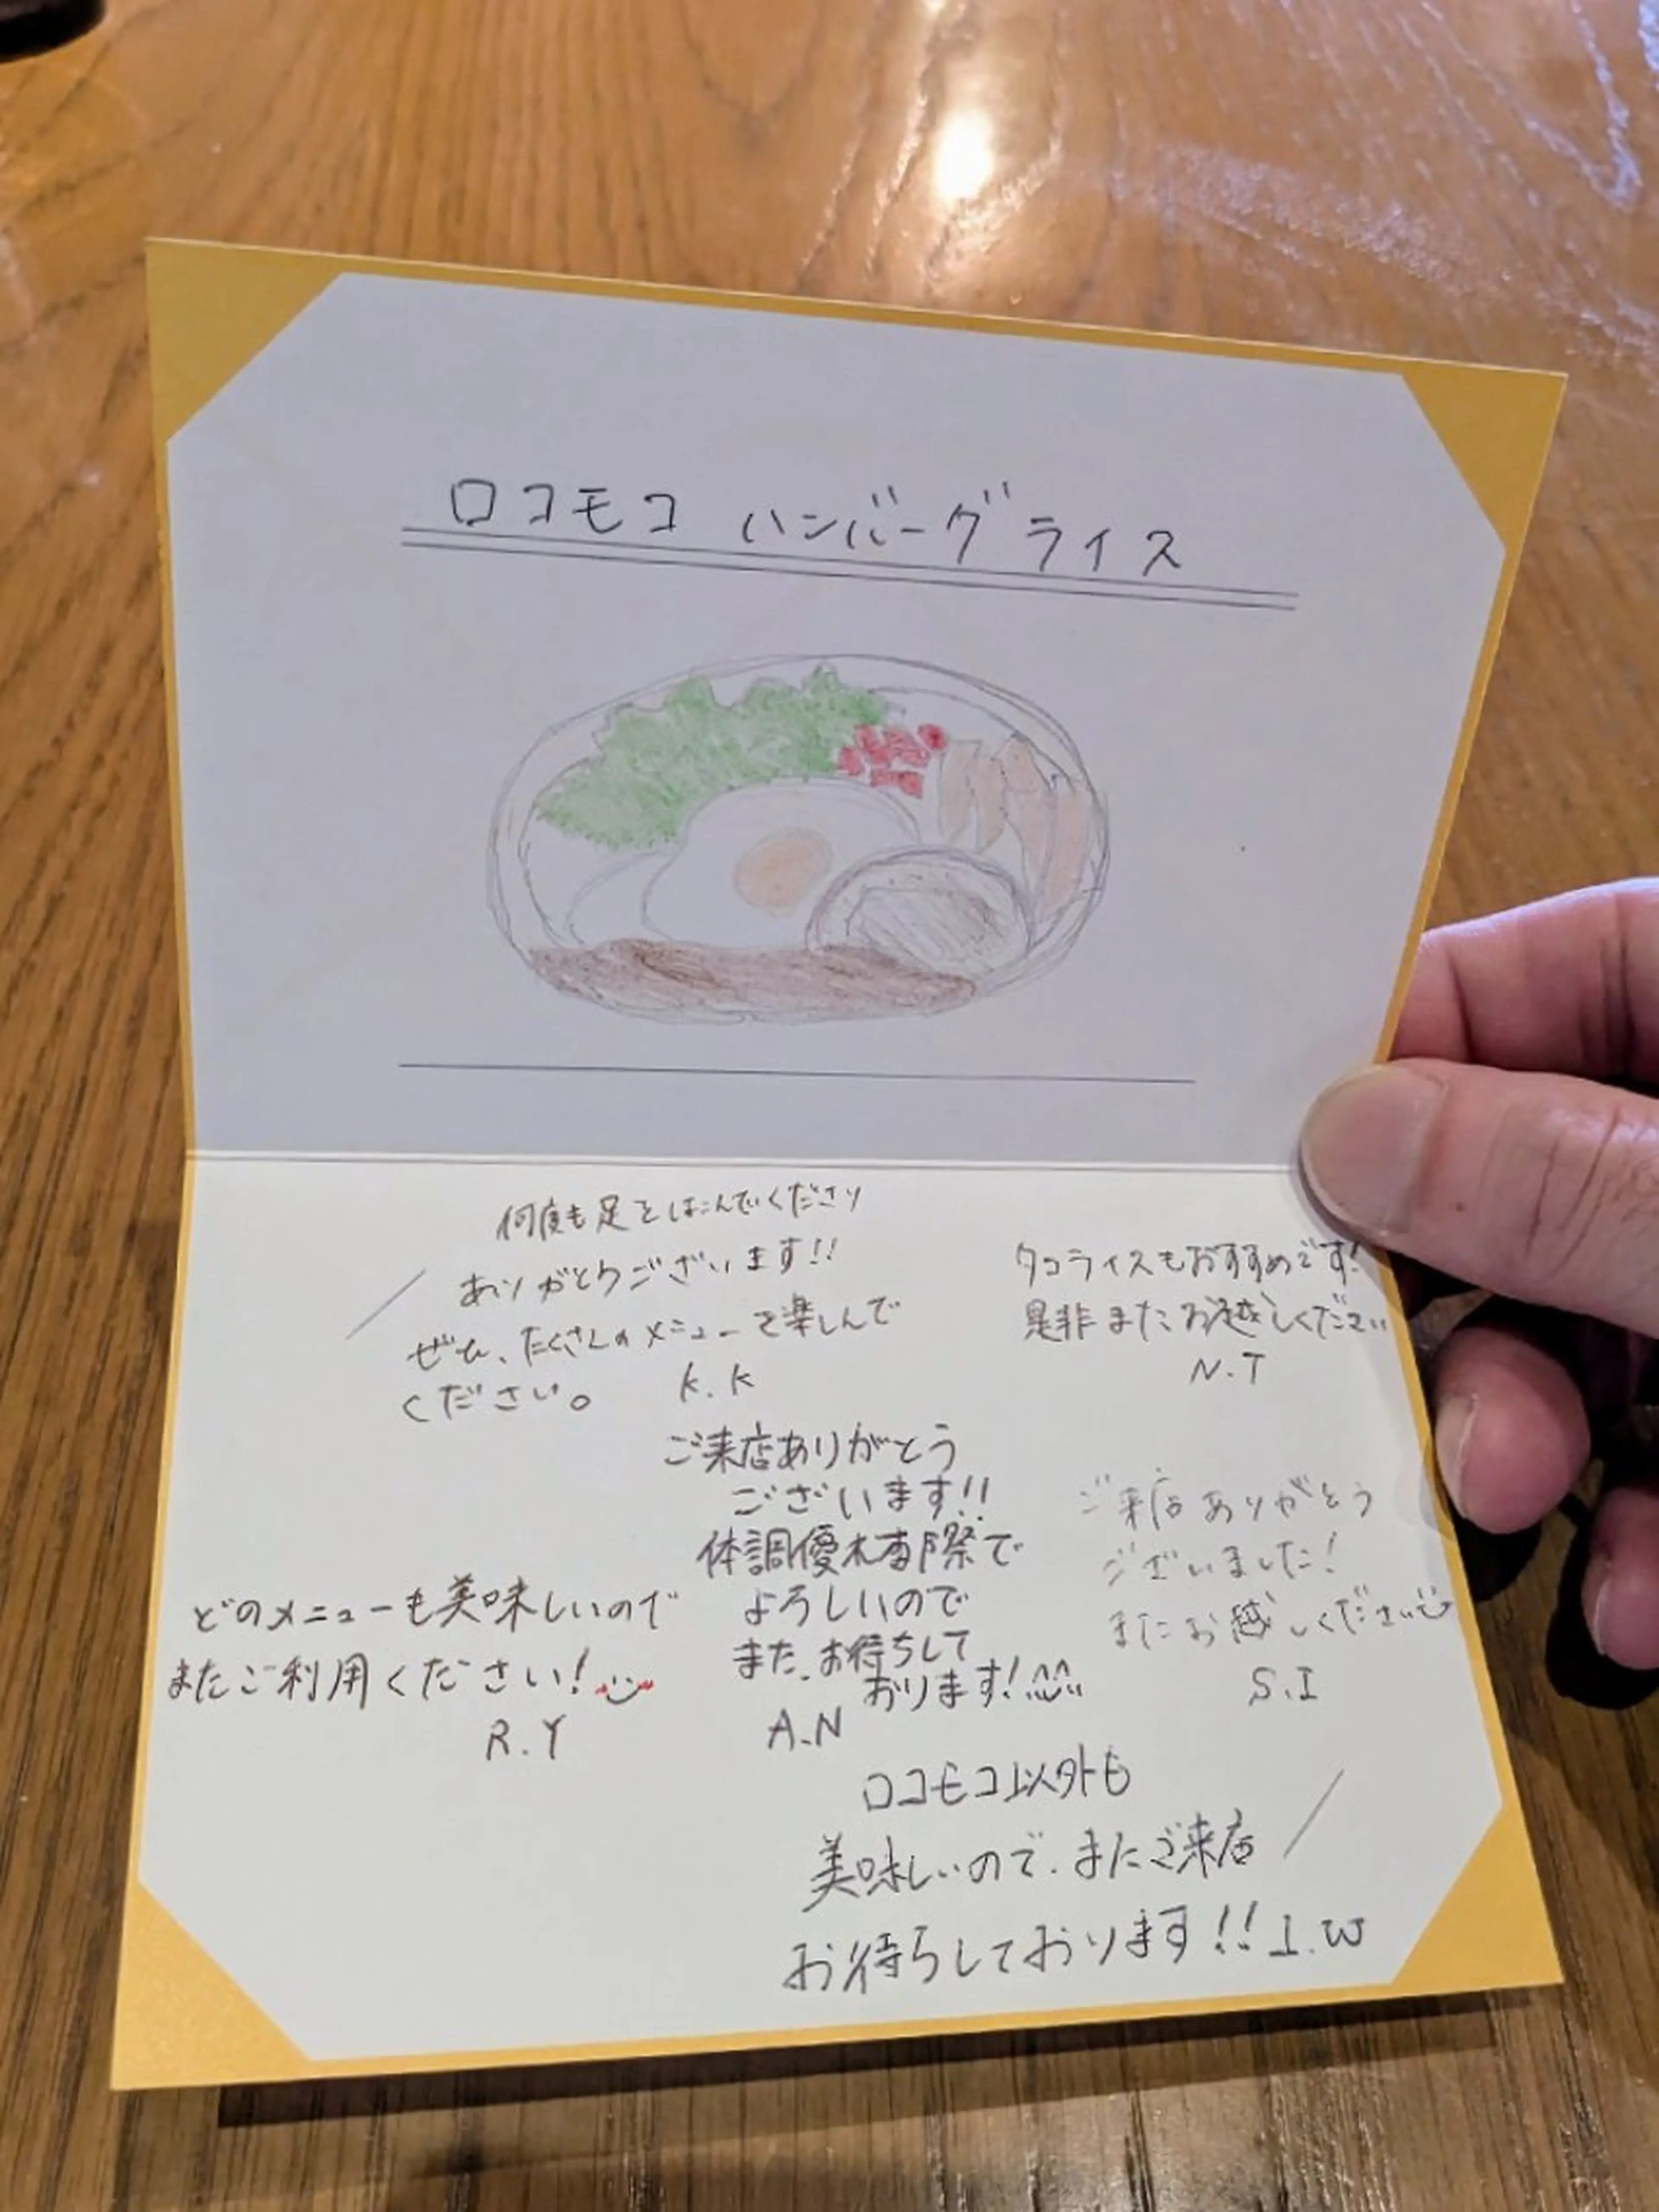 ロコモコ ハンバーグ ライス
何度も足をはこんでくださり
ありがとうございます!!
ぜひ、たくさんのメニューを楽しんで
ください。 K.K
タコライスもおすすめです!
是非またお越しください
N.T
ご来店ありがとう
ございます!!
体調優
よろしいので
また、お待ちして
おります!
A.N
ご来店ありがとう
ございました!
またお越しください
S.I
どのメニューも美味しいので
またご利用ください!
R.Y
ロコモコ以外も
美味しいので、またご来店
お待ちしております!! I.W